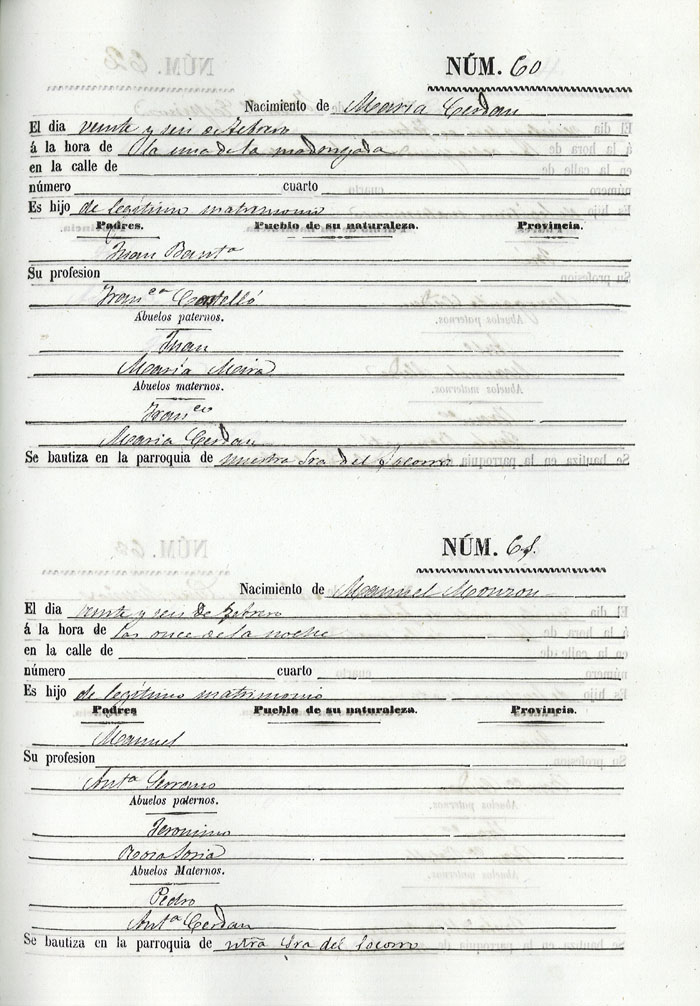 NÚM. 60
Nacimiento de María Cerdan
El dia veinte y seis de Febrero
á la hora de la una de la madrugada
en la calle de
número cuarto
Es hijo de legítimo matrimonio
Padres. Pueblo de su naturaleza. Provincia.
Juan Bauta
Su profesion
Franca Castelló
Abuelos paternos.
Juan
María Maira
Abuelos maternos.
Franco
Maria Cerdan
Se bautiza en la parroquia de nuestra Sra del Socorro
NÚM. 61.
Nacimiento de Manuel Monzon
El dia veinte y seis de Febrero
á la hora de las once de la noche
en la calle de
número cuarto
Es hijo de legítimo matrimonio
Padres Pueblo de su naturaleza. Provincia.
Manuel
Su profesion
Anta Serrano
Abuelos paternos.
Jeronimo
Rosa Soria
Abuelos Maternos.
Pedro
Anta Cerdan
Se bautiza en la parroquia de ntra Sra del Socorro